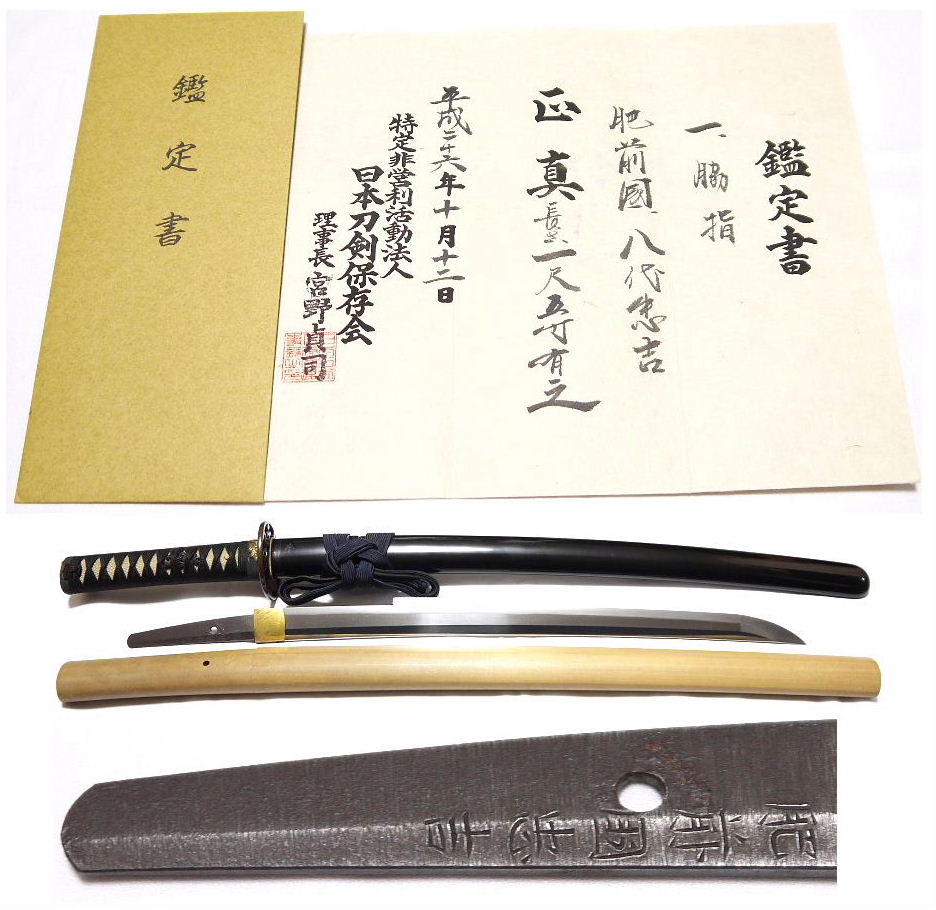 鑑定書
鑑定書
一、脇指
肥前國八代忠吉
正真長サ一尺五寸有之
平成二十六年十月十二日
特定非営利活動法人
日本刀剣保存会
理事長 宮野貞司
肥前國忠吉